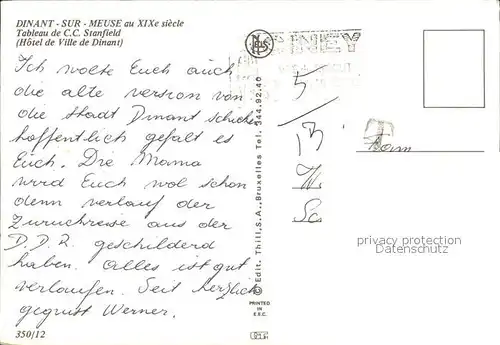 DINANT - SUR - MEUSE au XIXe siècle
Tableau de C.C. Stanfield
(Hôtel de Ville de Dinant)
Ich wolte Euch auch
die alte version von
die stadt Dinant schicken
hoffentlich gefalt es
Euch. Die Mama
wird Euch wol schon
denn verlauf der
Zuruckreise aus der
D.D.R. geschilderd
haben. Alles ist gut
verlaufen. Seit herzlich
gegrust Werner.
350/12
NELS
© Edit. Thill, S.A., Bruxelles Tel. 344.92.40
PRINTED
IN
E.E.C.
5/
13
T
privacy protection
Datenschutz